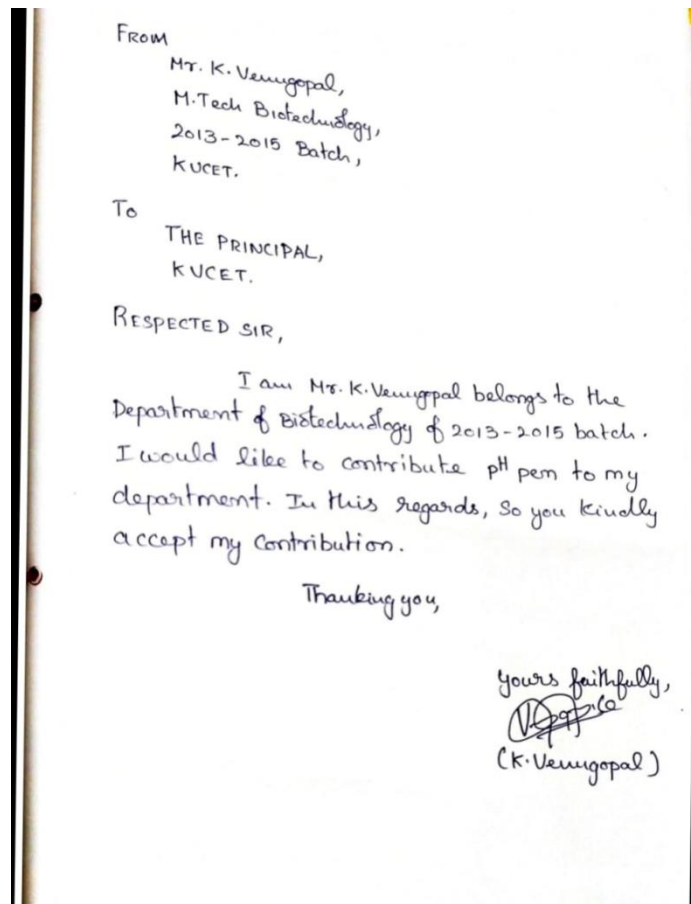 FROM
Mr. K. Venugopal,
M.Tech Biotechnology,
2013-2015 Batch,
KUCET.
To
THE PRINCIPAL,
KUCET.
RESPECTED SIR,
I am Mr. K. Venugopal belongs to the
Department of Biotechnology of 2013-2015 batch.
I would like to contribute pH pen to my
department. In this regards, So you kindly
accept my contribution.
Thanking you,
yours faithfully,
(K. Venugopal)